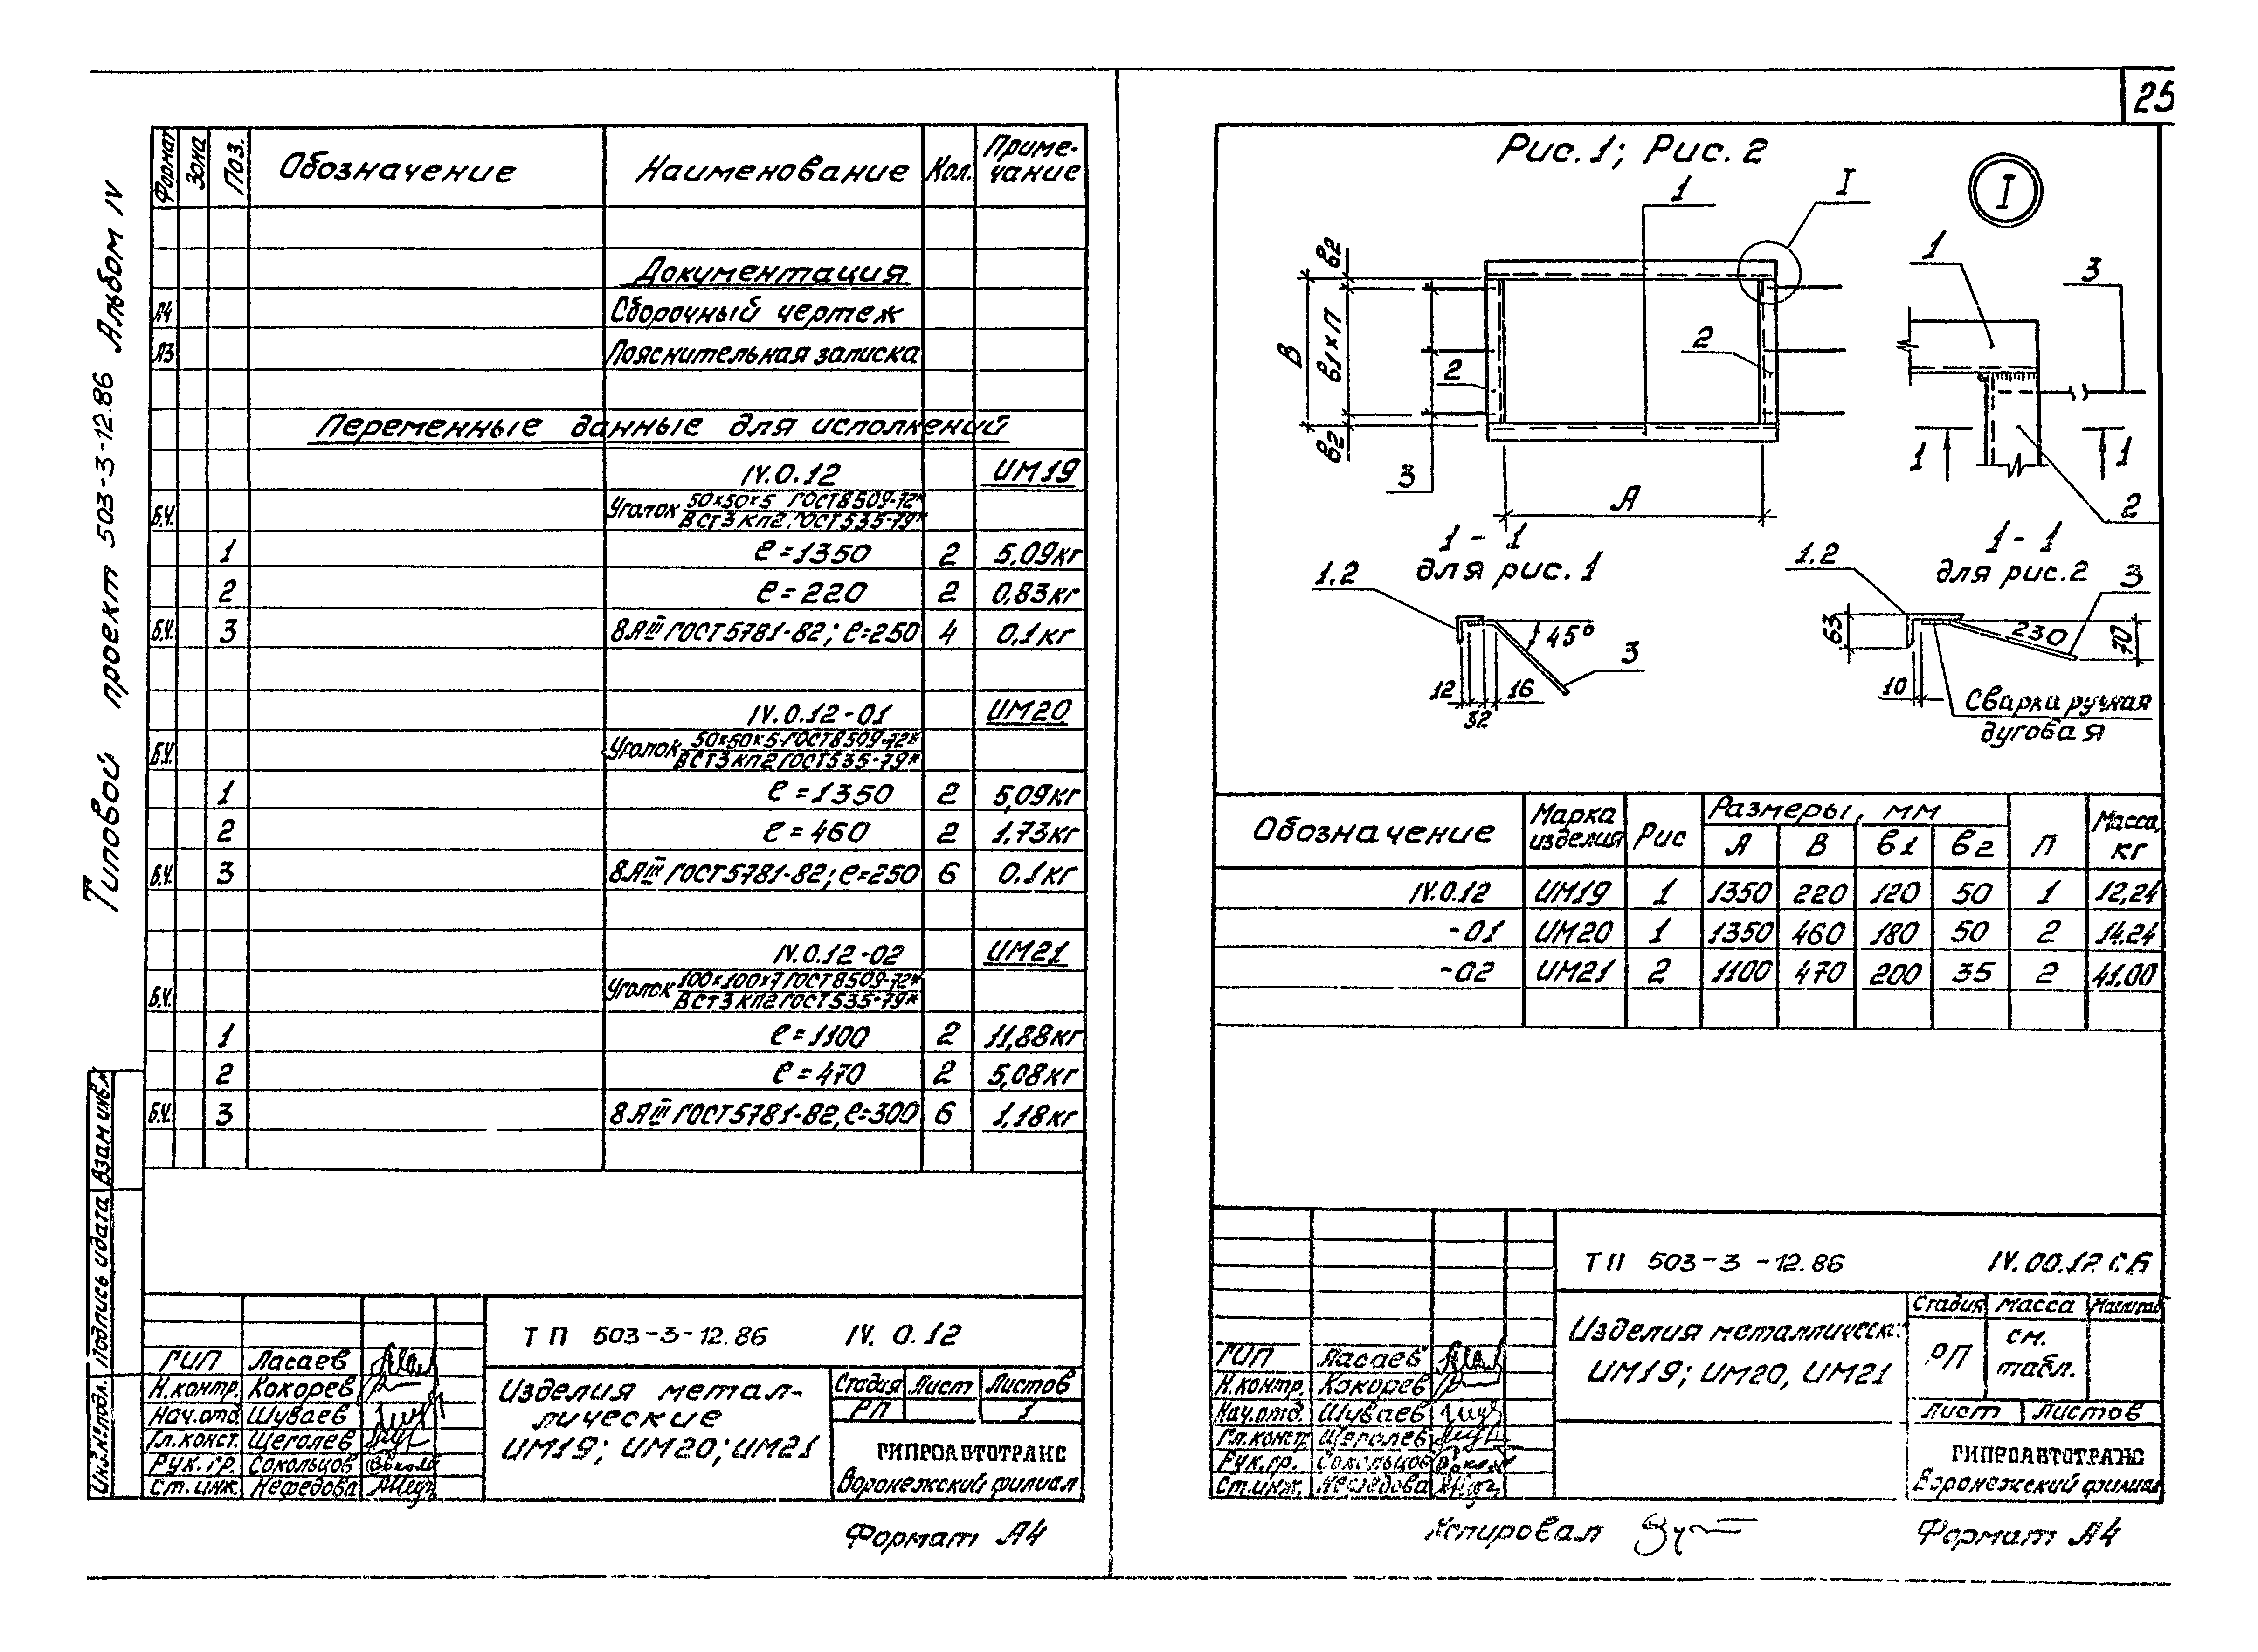 25
Типовой проект 503-3-12.86 Альбом IV
Формат Зона Поз. Обозначение Наименование Кол. Приме-
чание
Документация
А4 Сборочный чертеж
А3 Пояснительная записка
Переменные данные для исполнений
IV.0.12 ИМ19
Б.Ч. Уголок 50×50×5 ГОСТ8509-72*
ВСТ3 КП2 ГОСТ535-79*
1 ℓ=1350 2 5,09кг
2 ℓ=220 2 0,83кг
Б.Ч. 3 8АIII ГОСТ5781-82; ℓ=250 4 0,1кг
IV.0.12-01 ИМ20
Б.Ч. Уголок 50×50×5 ГОСТ8509-72*
ВСТ3 КП2 ГОСТ535-79*
1 ℓ=1350 2 5,09кг
2 ℓ=460 2 1,73кг
Б.Ч. 3 8АIII ГОСТ5781-82; ℓ=250 6 0.1кг
IV.0.12-02 ИМ21
Б.Ч. Уголок 100×100×7 ГОСТ8509-72*
ВСТ3 КП2 ГОСТ535-79*
1 ℓ=1100 2 11,88кг
2 ℓ=470 2 5,08кг
Б.Ч. 3 8АIII ГОСТ5781-82, ℓ=300 6 1,18кг
Инв.№подл. Подпись и дата Взам инв.№
ТП 503-3-12.86 IV. 0.12
ГИП Ласаев
Н.контр. Кокорев
Нач.отд. Шуваев
Гл.конст. Щеголев
Рук.гр. Сокольцов
Ст.инж. Нефедова
Изделия метал-
лические
ИМ19; ИМ20; ИМ21
Стадия Лист Листов
РП 1
ГИПРОАВТОТРАНС
Воронежский филиал
Формат А4
Рис.1; Рис.2
1
I
I
в2
В
в1×п
в2
2
2
3
А
1
3
1
1
2
1-1
для рис.1
1.2
45°
3
12
32
16
1-1
для рис.2
1.2
3
63
230
70
10
Сварка ручная
дуговая
Обозначение Марка
изделия Рис Размеры, мм п Масса,
кг
А В в1 в2
IV.0.12 ИМ19 1 1350 220 120 50 1 12,24
-01 ИМ20 1 1350 460 180 50 2 14.24
-02 ИМ21 2 1100 470 200 35 2 41,00
ТП 503-3-12.86 IV.00.12 СБ
ГИП Ласаев
Н.контр. Кокорев
Нач.отд. Шуваев
Гл.конст. Щеголев
Рук.гр. Сокольцов
Ст.инж. Нефедова
Изделия металлически
ИМ19; ИМ20, ИМ21
Стадия Масса Масштаб
РП см.
табл.
Лист Листов
ГИПРОАВТОТРАНС
Воронежский филиал
Копировал
Формат А4